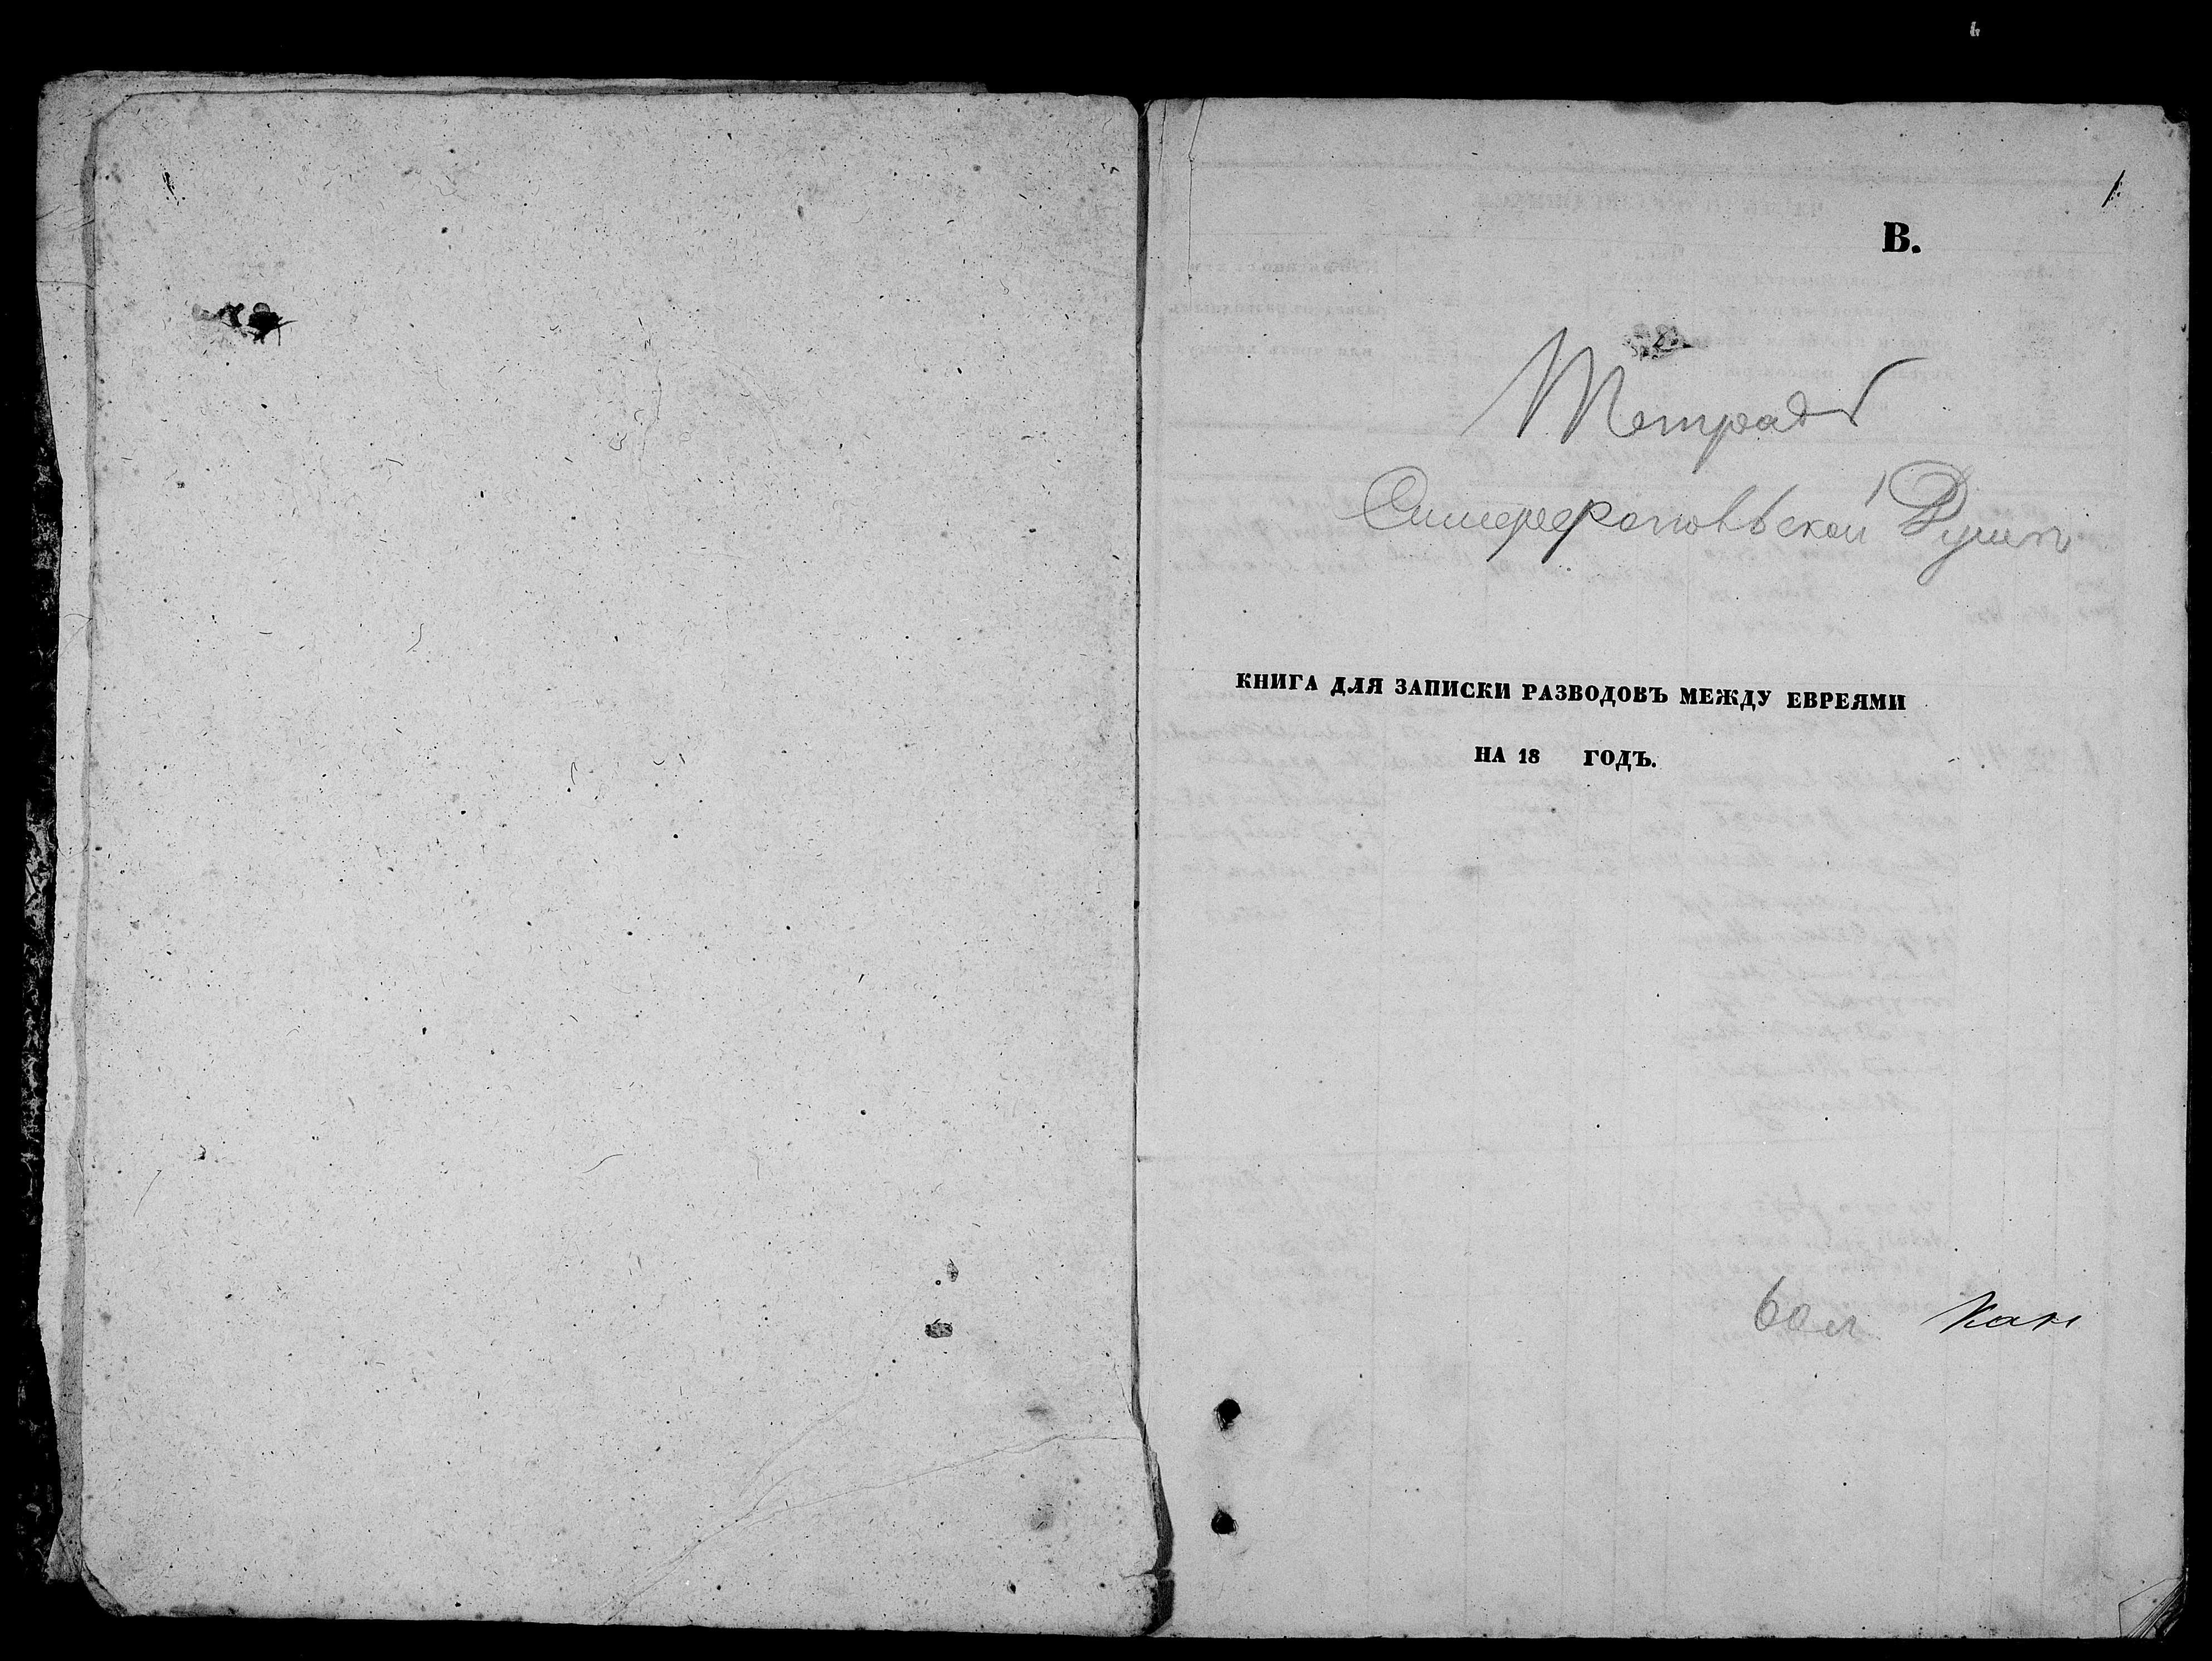 1
В.
Тетрадь
Симферопольской Думы
КНИГА ДЛЯ ЗАПИСКИ РАЗВОДОВЪ МЕЖДУ ЕВРЕЯМИ
НА 18 ГОДЪ.
60 л